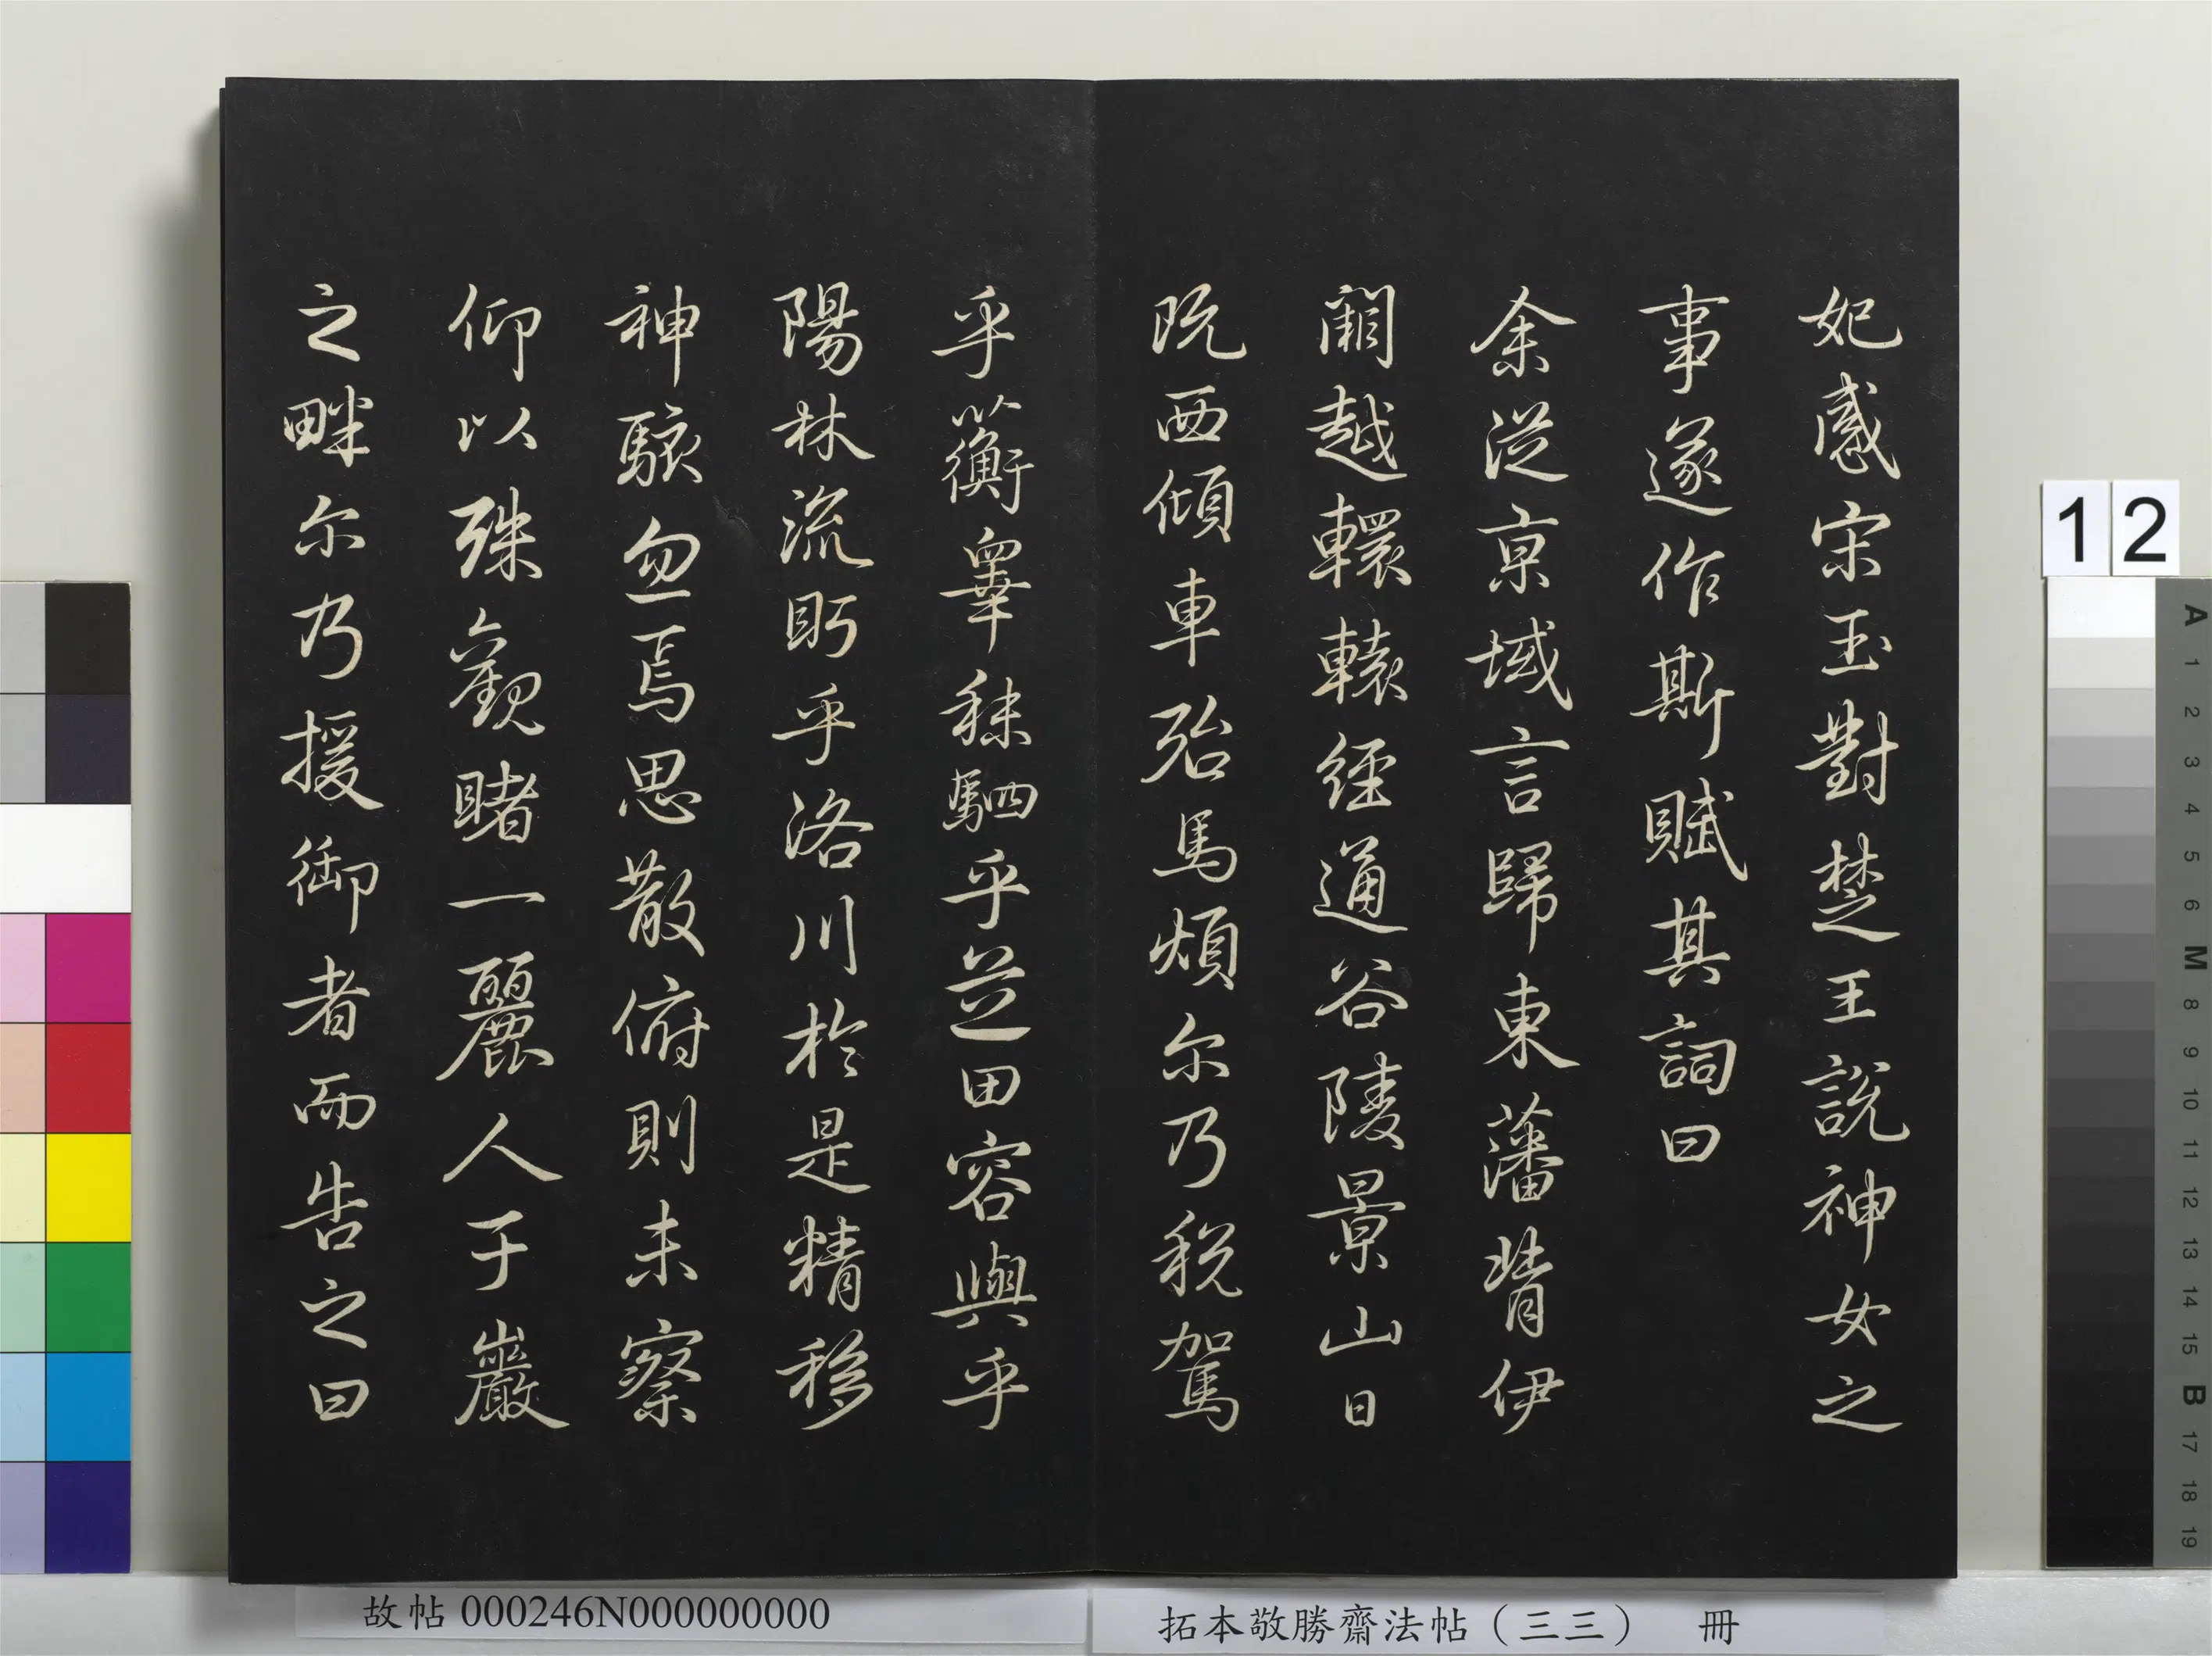 妃感宋玉對楚王說神女之
事遂作斯賦其詞曰
余從京域言歸東藩背伊
闕越轘轅經通谷陵景山日
既西傾車殆馬煩尔乃稅駕
乎蘅皋秣駟乎芝田容與乎
陽林流眄乎洛川於是精移
神駭忽焉思散俯則未察
仰以殊觀睹一麗人于巖
之畔尔乃援御者而告之曰
故帖 000246N000000000
拓本敬勝齋法帖（三三） 冊
12
A
1
2
3
4
5
6
M
8
9
10
11
12
13
14
15
B
17
18
19